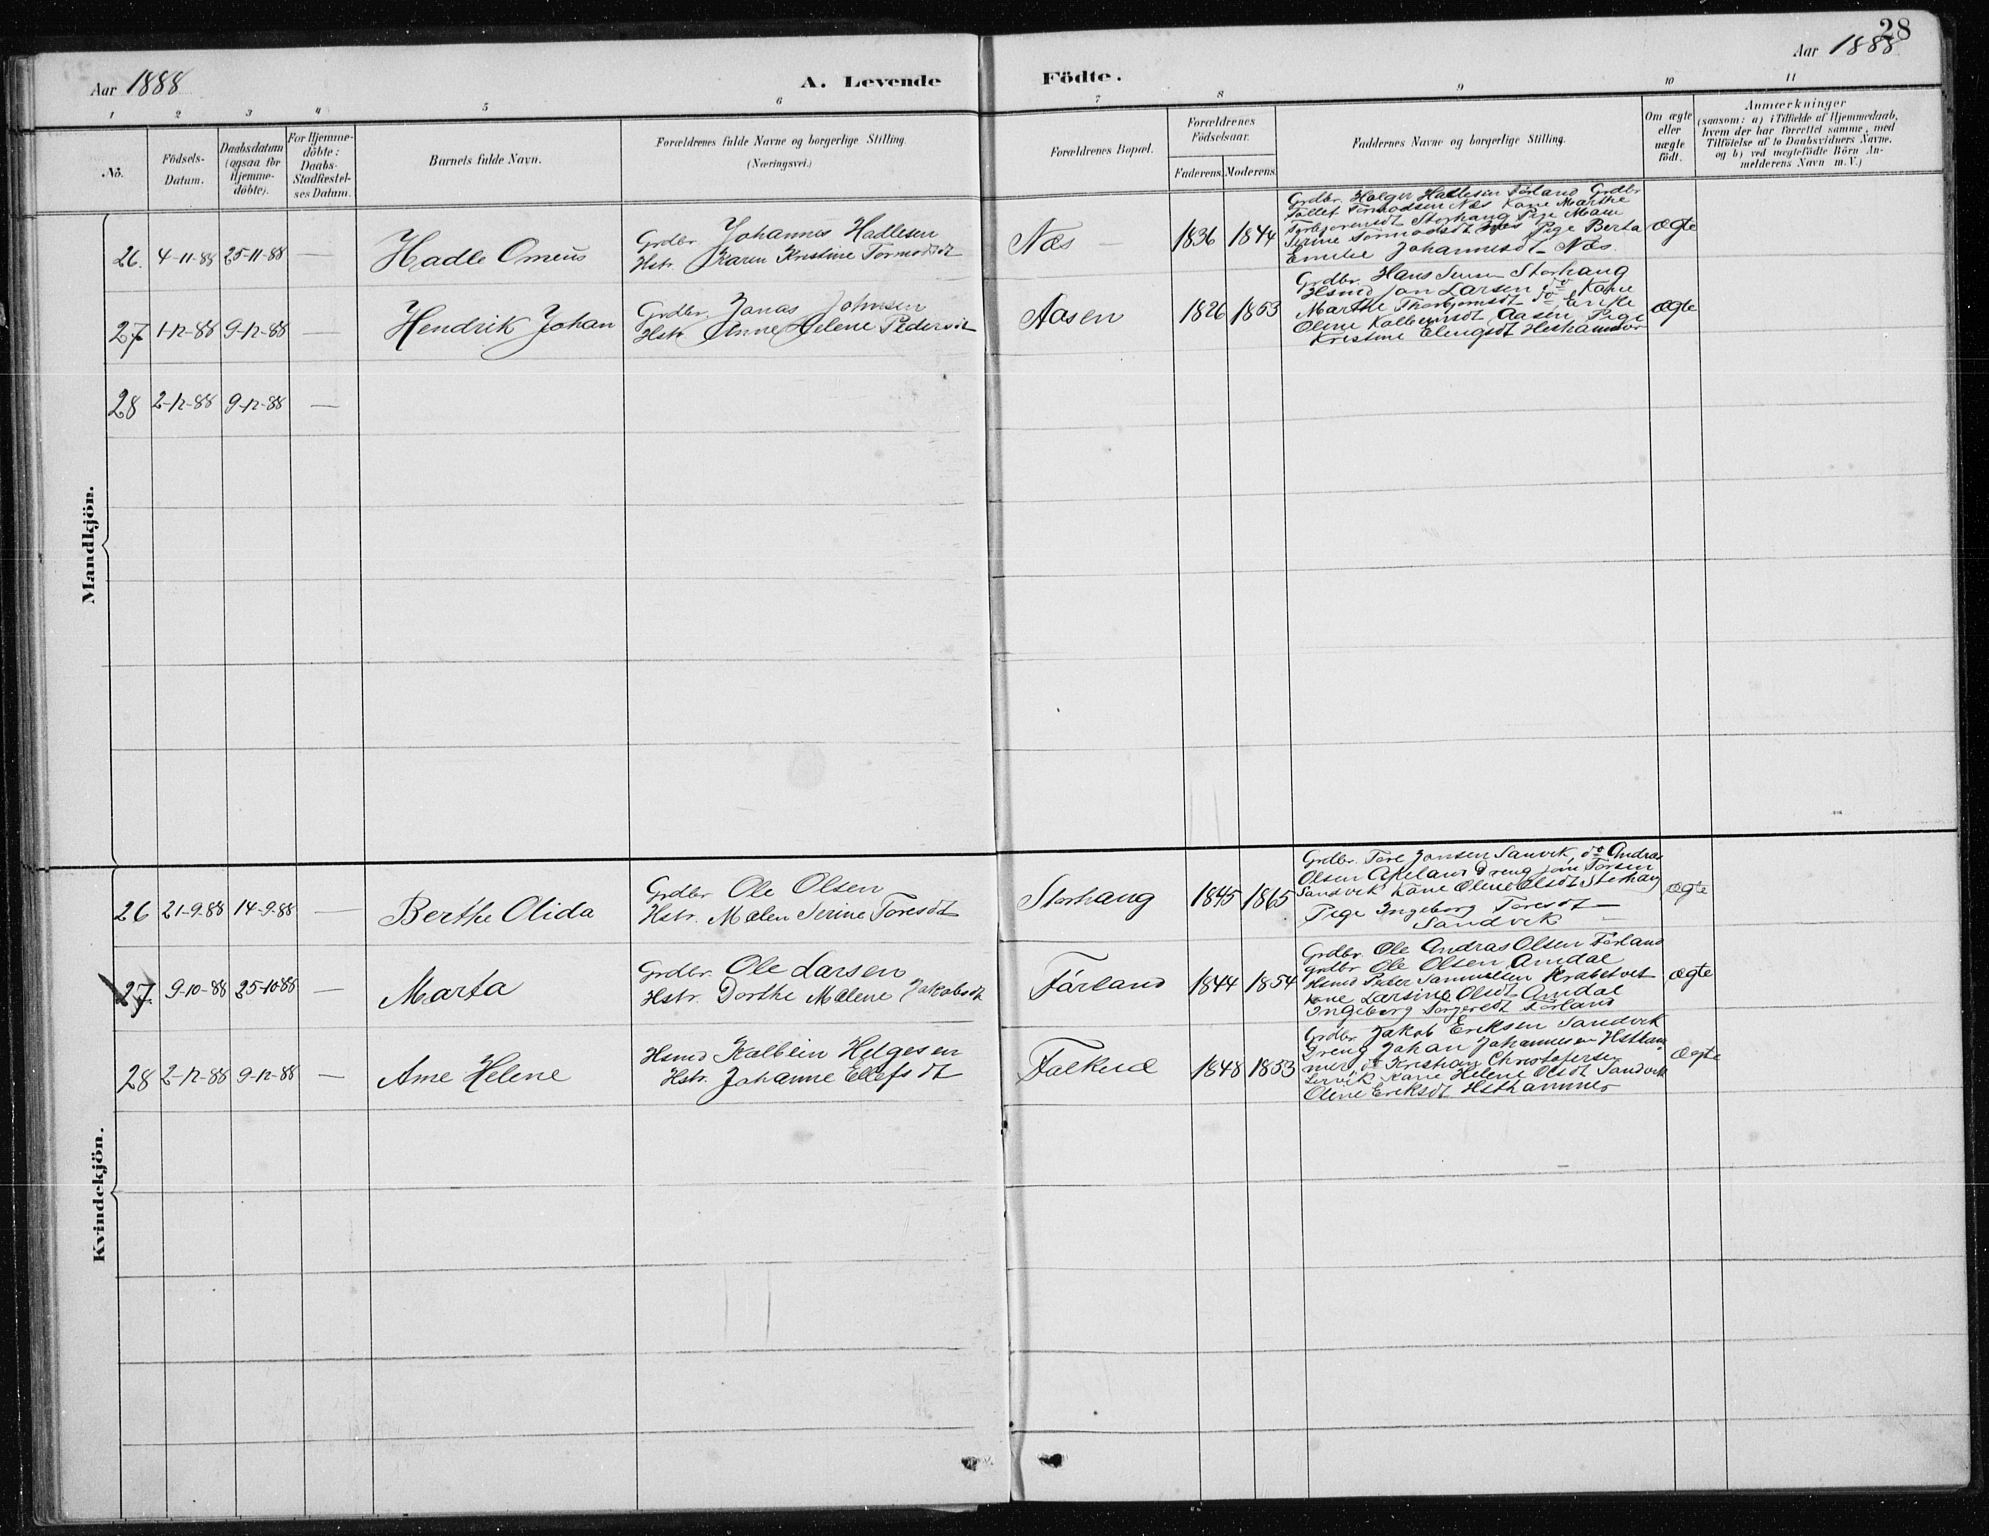 28
Aar 1888
A. Levende
Födte.
Aar 1888
1 2 3 4 5 6 7 8 9 10 11
No.
Födsels-
Datum.
Daabsdatum
(ogsaa for
Hjemme-
döbte).
For Hjemme-
döbte:
Daabs-
Stadfæstel-
ses Datum.
Barnets fulde Navn.
Forældrenes fulde Navne og borgerlige Stilling
(Næringsvei.)
Forældrenes Bopæl.
Forældrenes
Födselsaar.
Faderens.
Moderens.
Faddernes Navne og borgerlige Stilling.
Om ægte
eller
uægte
födt.
Anmærkninger
(saasom: a) i Tilfælde af Hjemmedaab,
hvem der har forrettet samme, med
Tilföielse af to Daabsvidners Navne,
og b) ved uægtefödte Börn An-
melderens Navn m. V.)
Mandkjön.
26. 4-11-88 25-11-88 — Hadle Omeus
Grdbr. Johannes Hadlesen
Hstr. Karen Kristine Tormodsdt
Næs — 1836 1844
Grdbr. Holger Hadlesen Førland Grdbr
Tollef Tormodsen Næs Kone Marthe
Torbjørnsdt Storhaug Pige Maru
Serine Tormodsdt Næs Pige Berta
Emelie Johannesdt Næs.
ægte
27 1-12-88 9-12-88 — Hendrik Johan
Grdbr. Jonas Johnsen
Hstr. Anne Helene Pedersdt
Aasen 1826 1853
Grdbr. Hans Jensen Storhaug
Hsmd Jon Larsen do Kone
Marthe Thorbjørnsdt do Enke
Olene Kolbeinsdt Aasen Pige
Kristine Elengsdt Hesthammer
ægte
28 2-12-88 9-12-88 —
Kvindekjön.
26 21-9-88 14-9-88 — Berthe Olida
Grdbr Ole Olsen
Hstr. Malen Serine Toresdt
Storhaug 1845 1865
Grdbr. Tore Jonsen Sanvik, do Andras
Olsen Apeland Dreng Jone Torsen
Sandvik Kone Olene Olsdt Storhaug
Pige Ingeborg Toresdt —
Sandvik —
ægte
27. 9-10-88 25-10-88 Marta
Grdbr. Ole Larsen
Hstr. Dorthe Malene Jakobsdt
Førland 1844 1854
Grdbr. Ole Andras Olsen Førland
grdbr Ole Olsen Amdal
Hsmd Peder Samuelsen Krabetveit
Kone Larsine Olsdt Amdal
Ingeborg Torgersdt Førland
ægte
28 2-12-88 9-12-88 — Ane Helene
Hsmd Kolbein Helgesen
Hstr. Johanne Ellefsdt
Falkeid 1848 1853
Grdbr. Jakob Eriksen Sandvik
Dreng Johan Johannesen Hestham
mer, do Kristian Christofersen
Kone Helene Olsdt Sandvik
Olene Eriksdt Hsthammer
ægte